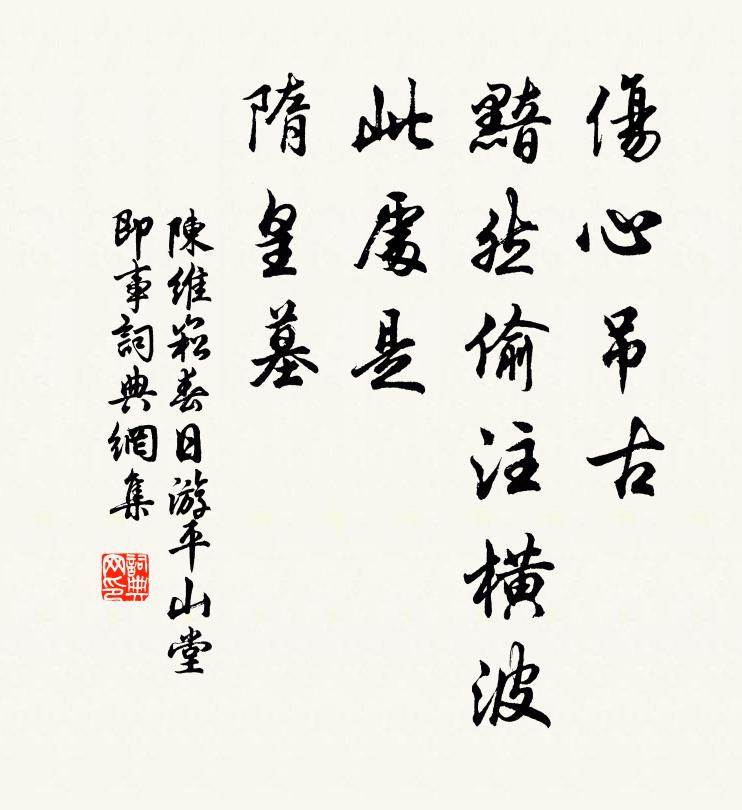 傷心吊古
黯然偷注橫波
此處是
隋皇墓
陳維崧春日游平山堂
即事詞典網集
詞典網印